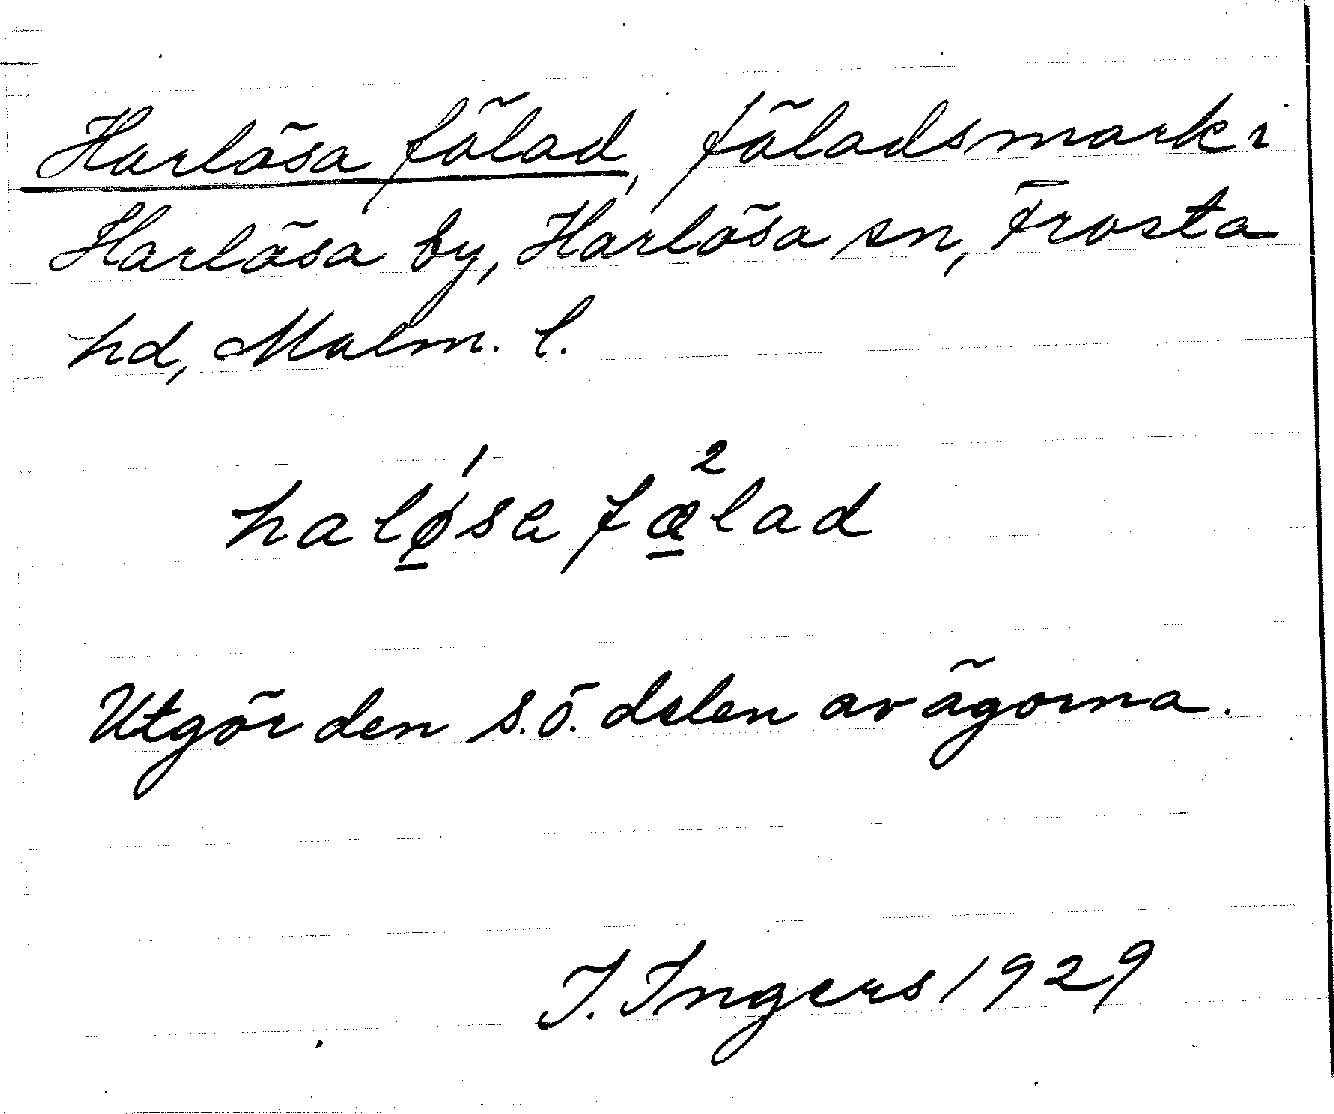 Harlösa fölad, föladsmark i
Harlösa by, Harlösa sn, Frosta
hd, Malm. l.
halø̲¹sa fæ̲²lad
Utgör den s.ö. delen av ägorna.
I. Ingers 1929